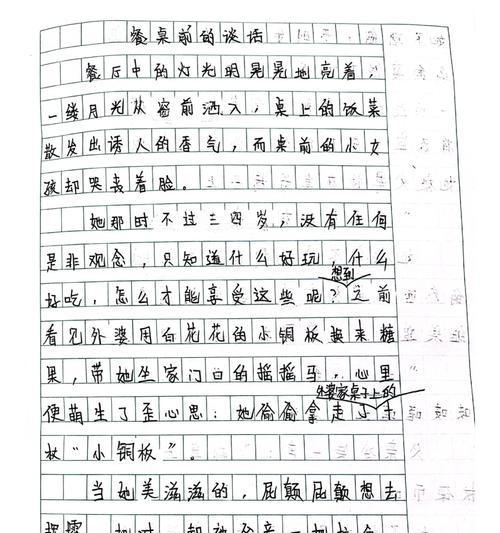 餐桌前的谈话
餐厅中的灯光明晃晃地亮着，
一缕月光从窗前洒入，桌上的饭菜
散发出诱人的香气，而桌前的小女
孩却哭丧着脸。
她那时不过三四岁，没有任何
是非观念，只知道什么好玩，什么
想到
好吃，怎么才能享受这些呢？之前
看见外婆用白花花的小铜板换来糖
果，带她坐家门口的摇摇马，心里
外婆家桌子上的
便萌生了歪心思：她偷偷拿走了五
枚“小铜板”。
当她美滋滋的，屁颠屁颠想去